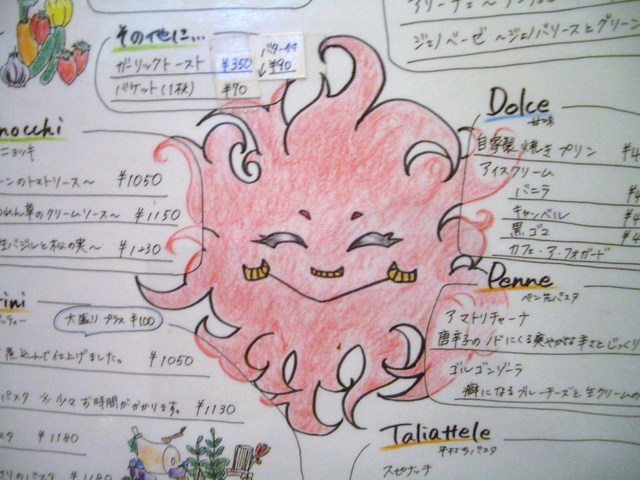 アリーナェ〜
ジェノベーゼ 〜ジェノバソースとグリーン
その他に...
ガーリックトースト ¥350
バター付 ↓¥90
バケット(1枚) ¥70
nocchi
ニョッキ
ーンのトマトソース〜 ¥1050
れん草のクリームソース〜 ¥1150
生バジルと松の実〜 ¥1230
Dolce
甘味
自家製 焼きプリン ¥4
アイスクリーム
バニラ
キャンベル
黒ゴマ
カフェ・ア・フォガード
rini
大盛り プラス ¥100
煮込んで仕上げました。 ¥1050
パスタ 少々お時間がかかります。 ¥1130
スタ ¥1180
のパスタ ¥1180
Penne
ペン先パスタ
アマトリチャーナ
唐辛子のノドにくる爽やかな辛さとじっくり
ゴルゴンゾーラ
癖になるブルーチーズと生クリームの
Taliattele
平打ちパスタ
スピナッチ